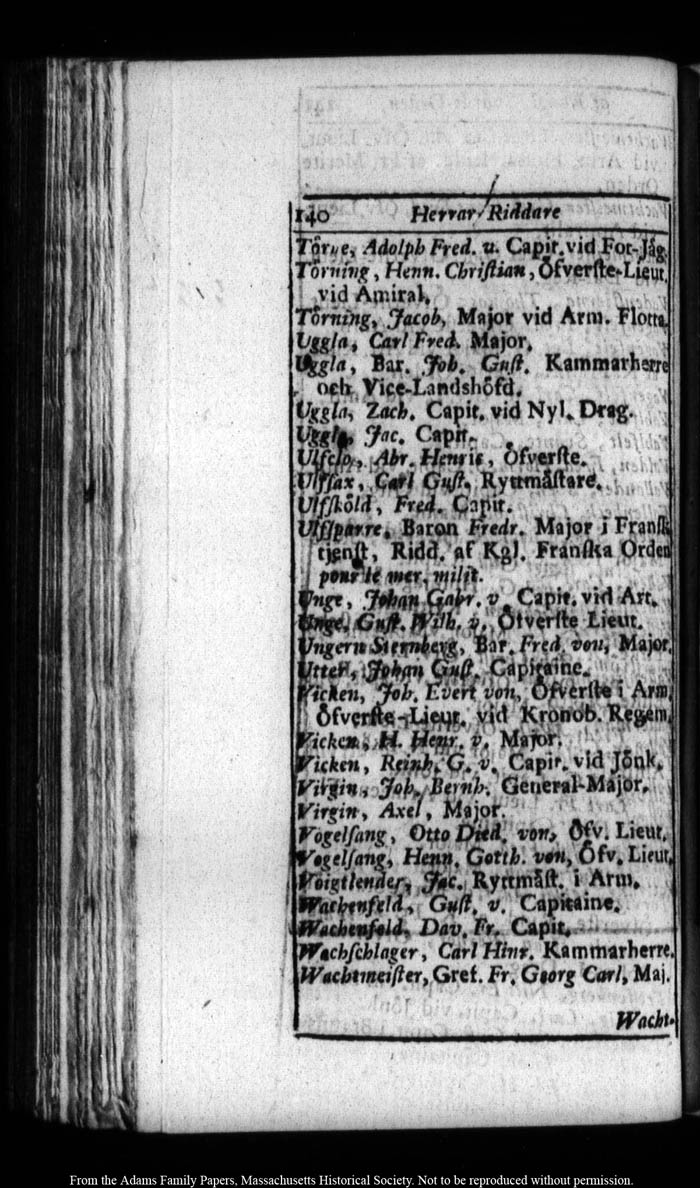 140 Herrar Riddare
Törne, Adolph Fred. u. Capit. vid For-Jäg.
Törning, Henn. Chriſtian, Öfverſte-Lieut.
vid Amiral.
Törning, Jacob, Major vid Arm. Flotta.
Uggla, Carl Fred. Major.
Uggla, Bar. Joh. Guſt. Kammarherre
och Vice-Landshöfd.
Uggla, Zach. Capit. vid Nyl. Drag.
Uggla, Jac. Capit.
Ulfclo, Abr. Henric, Öfverſte.
Ulfſax, Carl Guſt. Ryttmäſtare.
Ulfſköld, Fred. Capit.
Ulfſparre, Baron Fredr. Major i Franſk
tjenſt, Ridd. af Kgl. Franſka Orden
pour le mer. milit.
Unge, Johan Gabr. v. Capit. vid Art.
Unge, Guſt. Wilh. v. Öfverſte Lieut.
Ungern Sternberg, Bar. Fred. von, Major.
Utter, Johan Guſt. Capitaine.
Vicken, Joh. Evert von, Öfverſte i Arm.
Öfverſte-Lieut. vid Kronob. Regem.
Vicken, H. Henr. v. Major.
Vicken, Reinh. G. v. Capit. vid Jönk.
Virgin, Joh. Bernh. General-Major.
Virgin, Axel, Major.
Vogelſang, Otto Died. von, Öfv. Lieut.
Vogelſang, Henn. Gotth. von, Öfv. Lieut.
Voigtlender, Jac. Ryttmäſt. i Arm.
Wachenfeld, Guſt. v. Capitaine.
Wachenfeld, Dav. Fr. Capit.
Wachſchlager, Carl Hinr. Kammarherre.
Wachtmeiſter, Gref. Fr. Georg Carl, Maj.
Wacht-
From the Adams Family Papers, Massachusetts Historical Society. Not to be reproduced without permission.